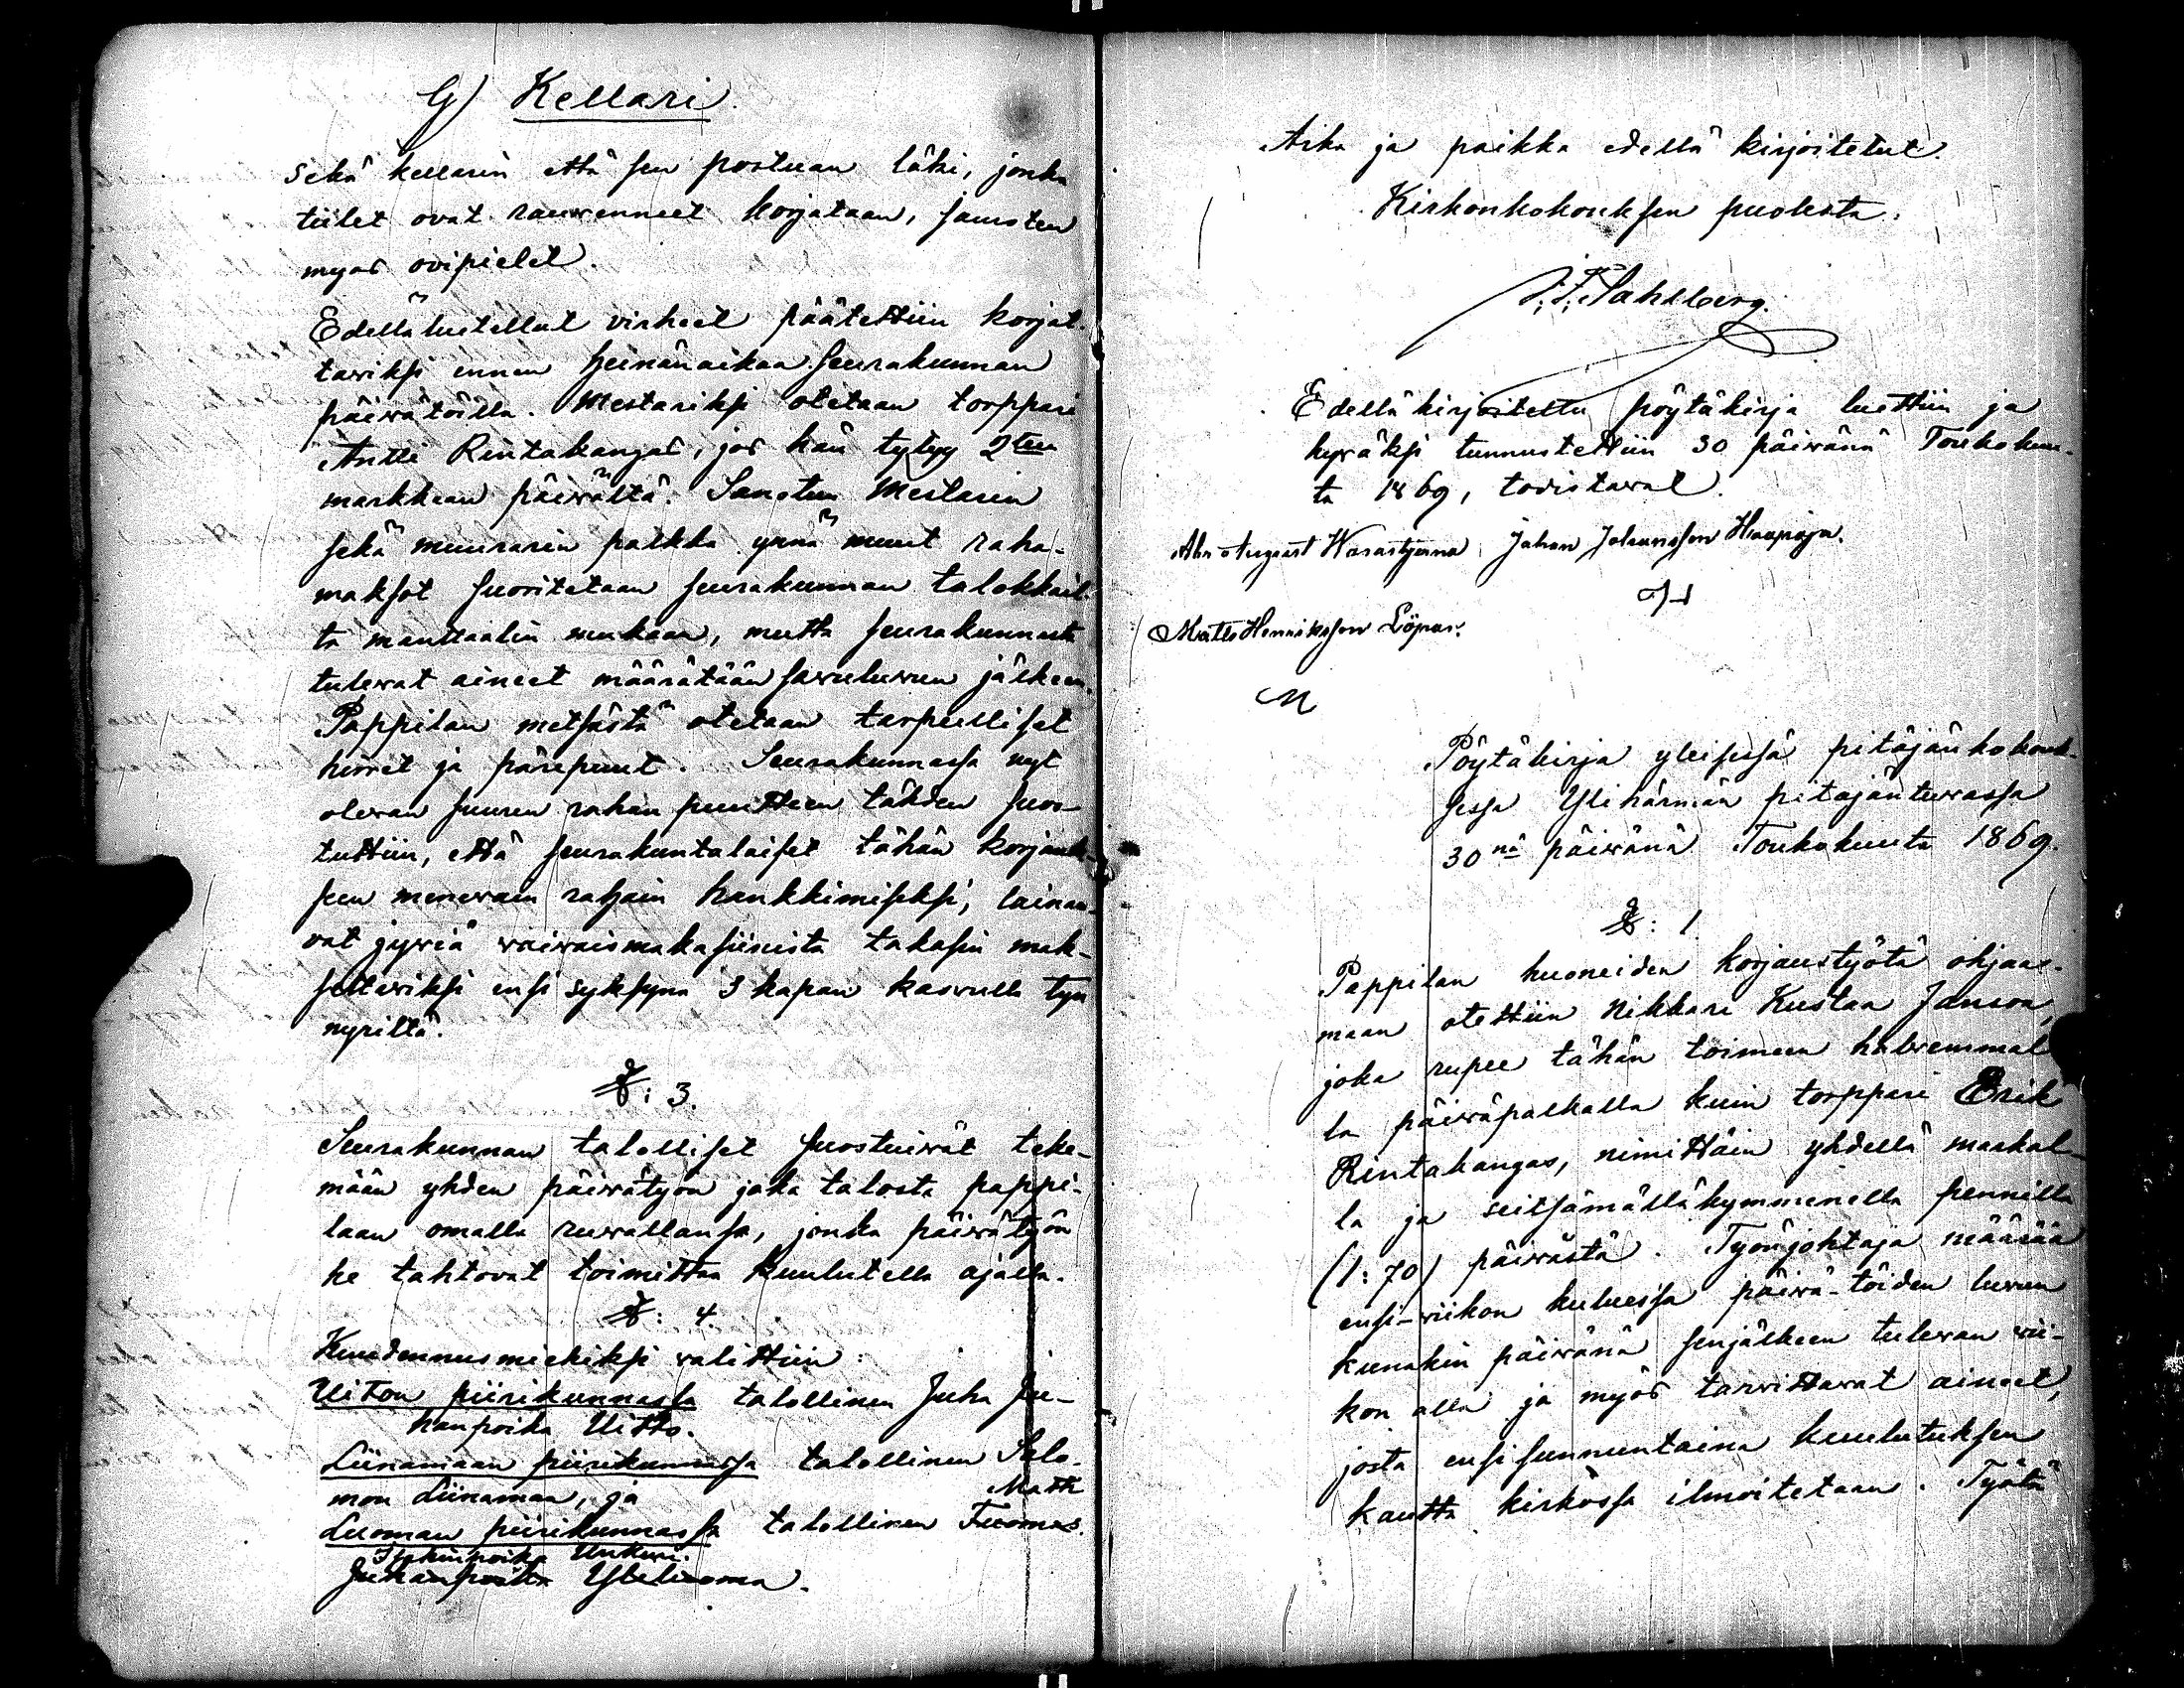 G) Kellari.
Sekä kellarin että sen porstuan läki, jonka
tiilet ovat rauwenneet korjataan, samoten
myös ovipielet.
Edellä luetellut virheet päätettiin korjat-
tawiksi ennen heinänaikaa seurakunnan
päiwätöillä. Mestariksi otetaan torppari
Antti Rintakangas, jos hän tytyy 2ten
markkaan päiwältä. Sanotun Mestarin
sekä muurarin palkka ynnä muut raha-
maksot suoritetaan seurakunnan talokkail-
ta manttaalin mukaan, mutta seurakunnasta
tulewat aineet määrätään sawuluwun jälkeen.
Pappilan metsästä otetaan tarpeelliset
hirret ja pärepuut. Seurakunnassa nyt
olewan suuren rahan puutteen tähden suos-
tuttiin, että seurakuntalaiset tähän korjauk-
seen menewäin rahain hankkimiseksi, lainaa-
vat jywiä waiwaismakasiinista takasin mak-
settawiksi ensi syksynä 3 kapan kaswulla tyn
nyriltä.
§: 3.
Seurakunnan talolliset suostuiwat teke-
mään yhden päiwätyön joka talosta pappi-
laan omalla ruwallansa, jonka päiwätyön
he tahtovat toimittaa kuulutella ajalla.
§: 4.
Kuudennusmiehiksi valittiin:
Uiton piirikunnassa talollinen Juha Ju-
hanpoika Uitto.
Liinamaan piirikunnassa talollinen Salo-
mon Liinamaa, ja
Matti
Luoman piirikunnassa talollinen Tuomas
Unkuri.
Juhanpoika Yliluoma.
Aika ja paikka edellä kirjoitetut.
Kirkonkokouksen puolesta:
J. F. Sahlberg.
Edelläkirjoitettu pöytäkirja luettiin ja
hywäksi tunnustettiin 30 päiwänä Toukokuu-
ta 1869, todistawat.
August Wärastjerna Johan Johansson Haapoja.
Matts Henriksson Löpar.
Pöytäkirja yleisessä pitäjänkokouk-
sessa Ylihärmän pitäjäntuwassa
30nä päiwänä Toukokuuta 1869.
§: 1.
Pappilan huoneiden korjaustyötä ohjaa-
maan otettiin Nikkari Kustaa Janson,
joka rupee tähän toimeen halwemmal
la päiwäpalkalla kuin torppari Erik
Rintakangas, nimittäin yhdellä markal-
la ja seitsämälläkymmenellä pennillä
(1:70) päiwästä. Työnjohtaja määrää
ensi-wiikon kuluessa päiwä-töiden luwun
kunakin päiwänä senjälkeen tulewan wii-
kon alla ja myös tarwittawat aineet,
josta ensi sunnuntaina kuulutuksen
kautta kirkossa ilmoitetaan. Työtä